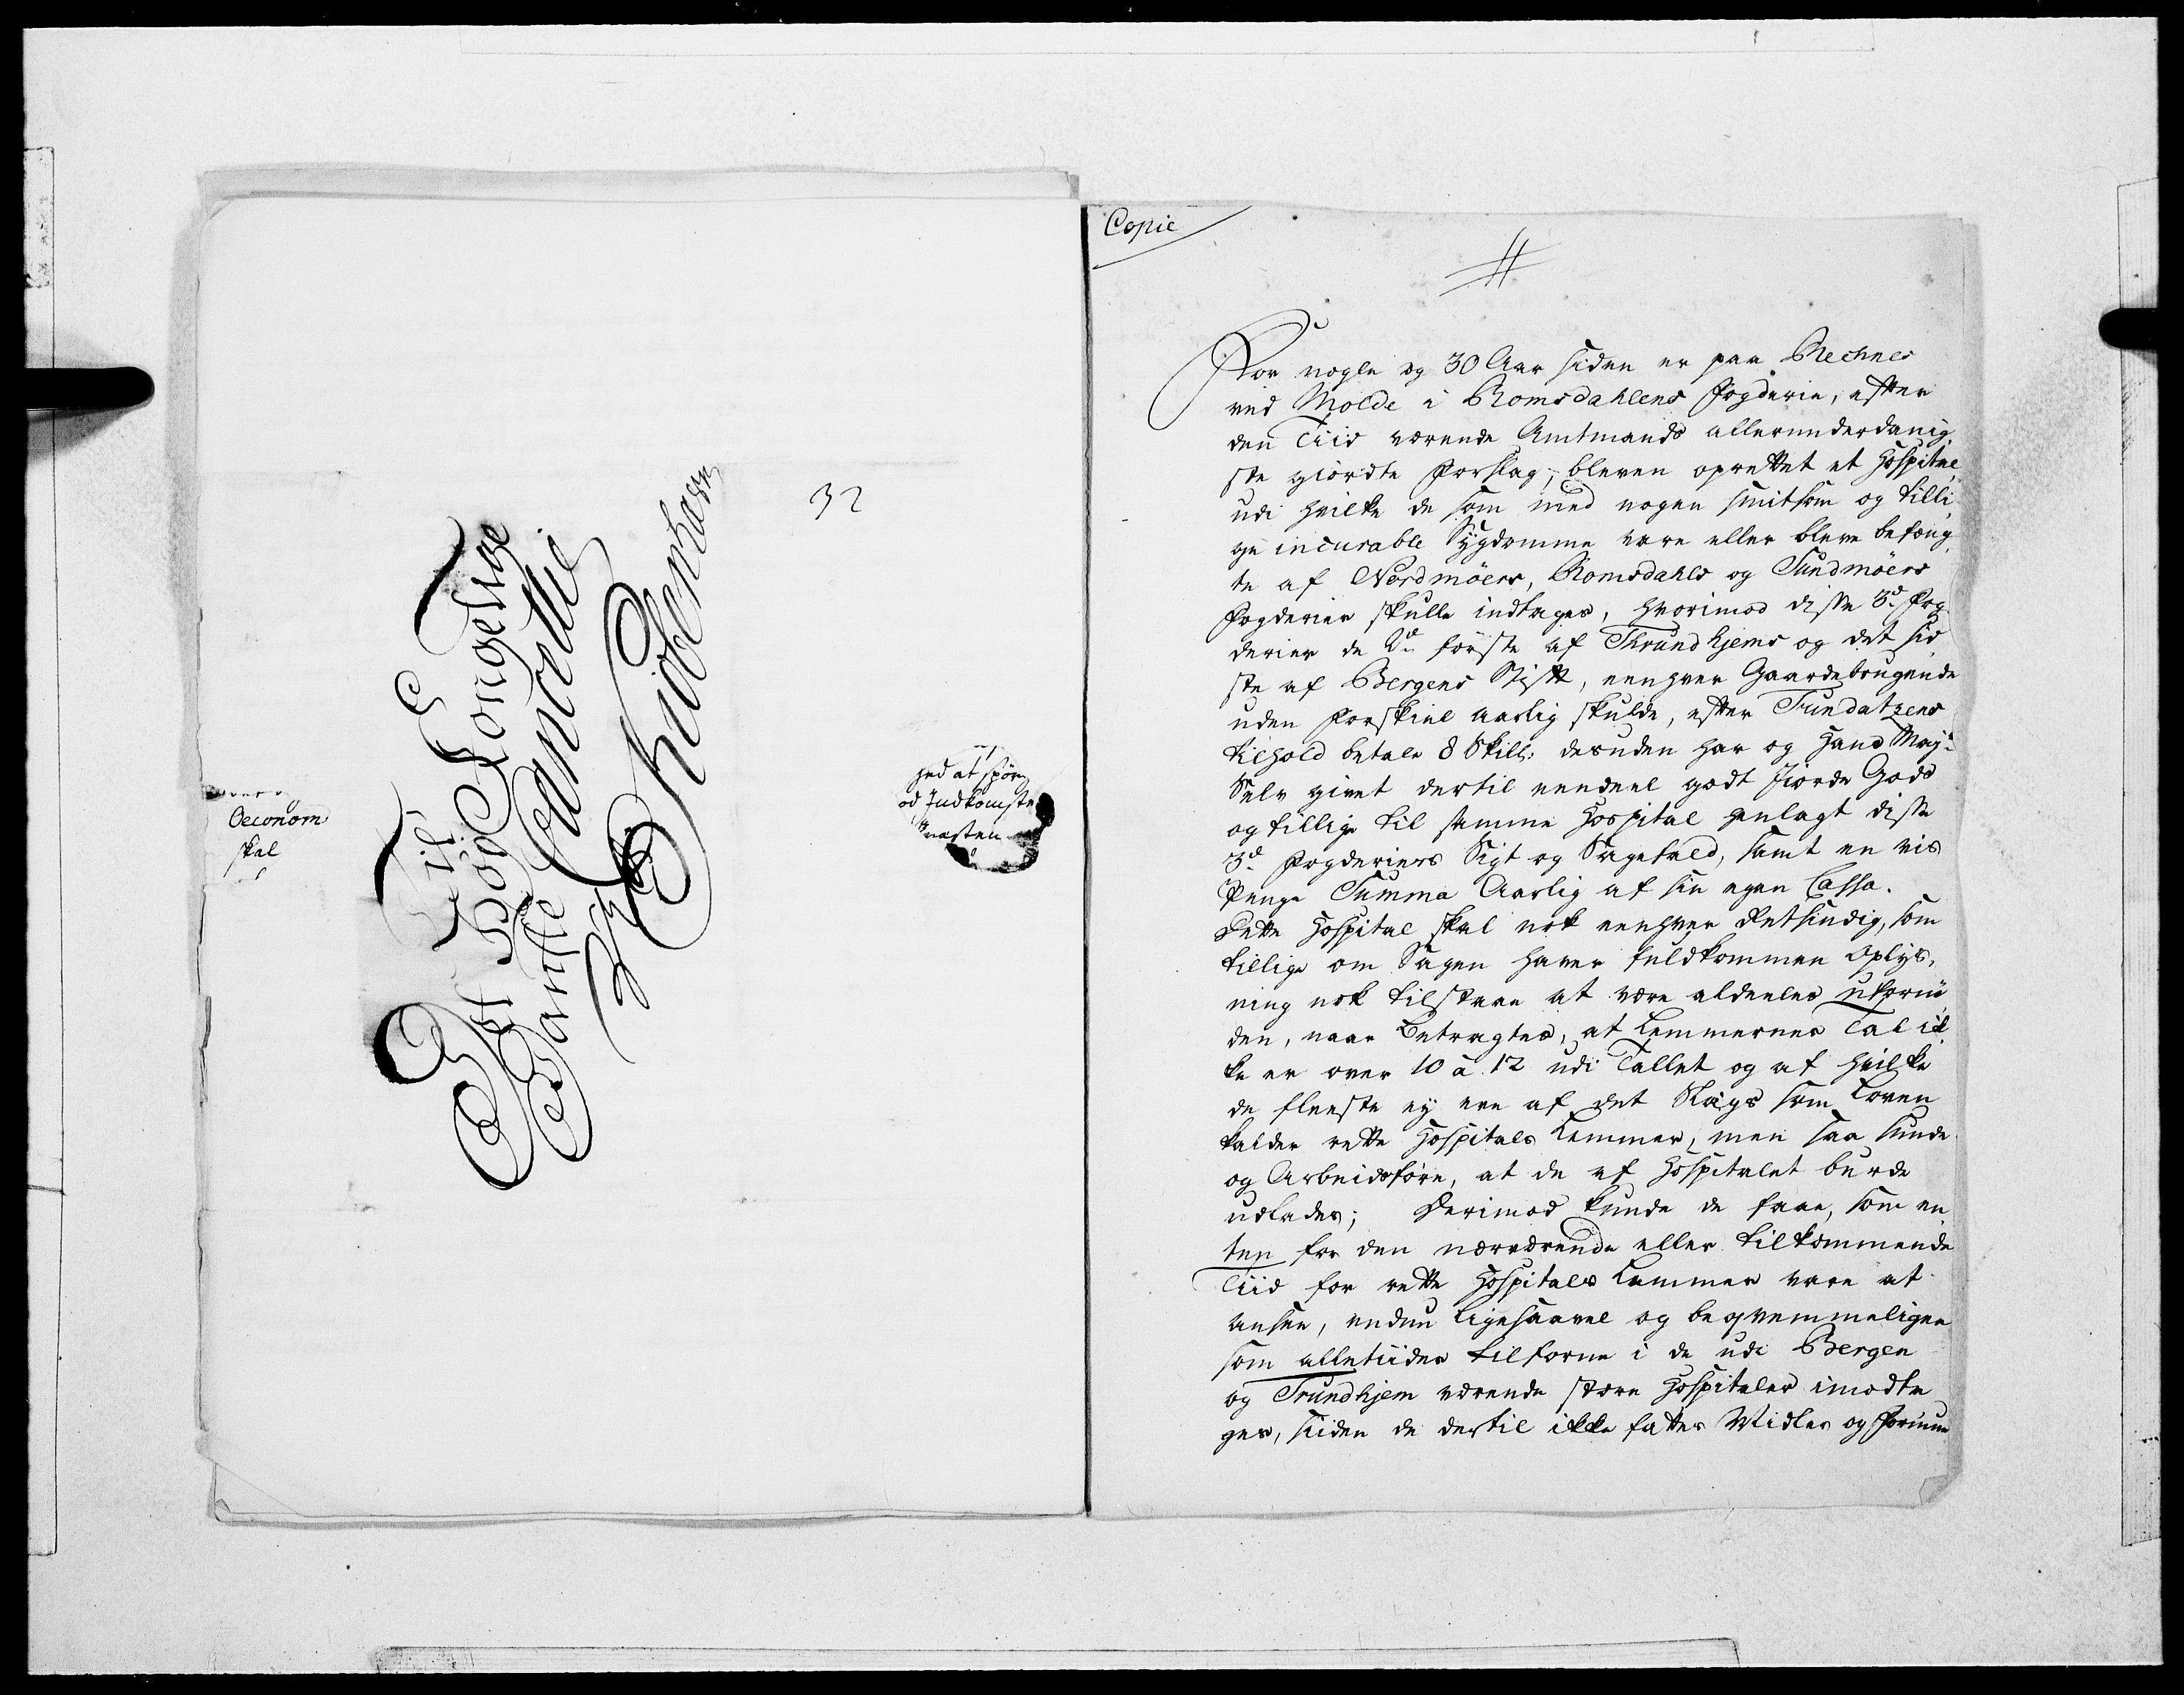 Til
Det Höy Kongelige
Danske Cancellie
i
Kiöbenhavn
32
Oeconom
skal
hed at spör
od Indkomste
næsten
Copie
For nogle og 30 Aar siden er paa Rechnes
ved Molde i Romsdahlens fogderie, efter
den Tiid værende Amtmands allerunderdanig
ste giordte Forslag, bleven oprettet et Hospital
udi hvilke de som med nogen smitsom og tilli
ge incurable Sÿgdomme vare eller bleve befæng
te af Nordmöers, Romsdahls og Sundmöers
Fogderier skulle indtages, hvorimod disse 3de Fog
derier de 2de förste af Thrundhjems og det sid
ste af Bergens Stift, eenhver Gaardebrugende
uden Forskiel aarlig skulde, efter Fundatzens
tilhold betale 8 Skill: desuden har og Hans Mayt
Selv givet dertil eendeel godt Jorde Gods
og tillige til samme Hospital henlagt disse
3de Fogderiers Sigt og Sagefald, samt en vis
Penge Summa Aarlig af sin egen Cassa.
Dette Hospital skal nok eenhver Retsindig, som
tillige om Sagen haver fuldkommen oplys,
ning nok tilstaae at være aldeeles ufornü
den, naar Betragtes, at Lemmernes Tal ik
ke er over 10 à 12 udi Tallet og af hvilke
de fleeste ej ere af det Slags som Loven
kalder rette Hospitals Lemmer, men saa sunde
og Arbeidsföre, at de af Hospitalet burde
udlades; Derimod kunde de faae, som en
ten for den nærværende eller tilkommende
Tiid for rette Hospitals Lemmer vare at
ansee, endnu ligesaavel og beqvemmeligen
som alletiider tilforne i de udi Bergen
og Trundhjem værende store Hospitaler imodta
ges, siiden de dertil ikke fattes Midler og Formue